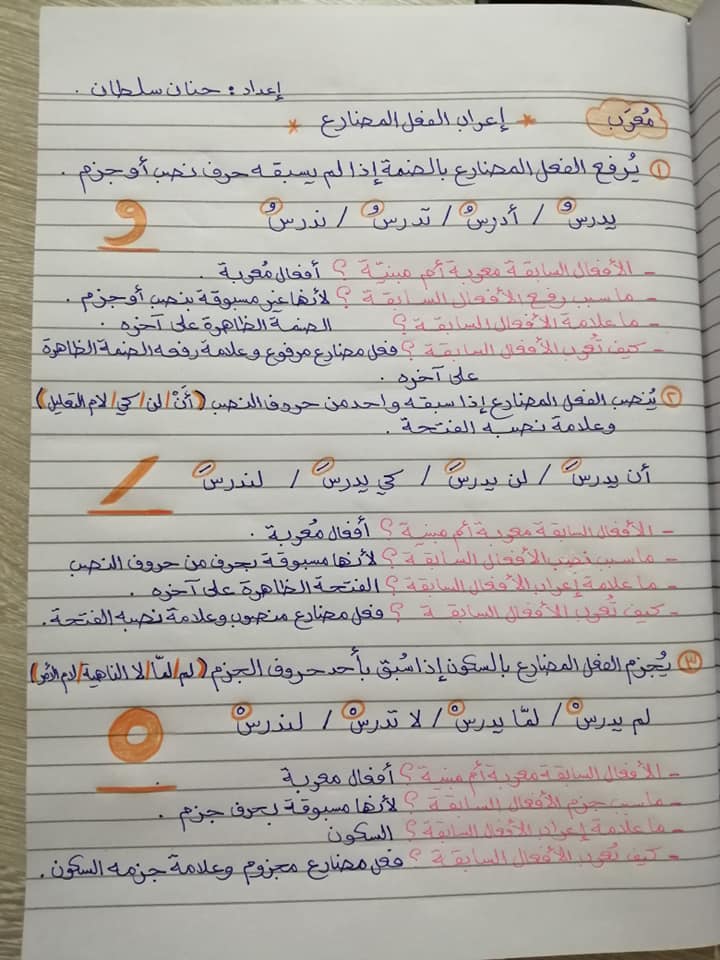 إعداد: حنان سلطان .
مُعرَب
* إعراب الفعل المضارع *
١ يُرفع الفعل المضارع بالضمة إذا لم يسبقه حرف نصب أو جزم .
يدرسُ / أدرسُ / تدرسُ / ندرسُ
ـُ
- الأفعال السابقة معربة أم مبنيّة ؟ أفعال مُعربة .
- ما سبب رفع الأفعال السابقة ؟ لأنها غير مسبوقة بنصب أو جزم .
- ما علامة الأفعال السابقة ؟ الضمة الظاهرة على آخره .
- كيف تُعرب الأفعال السابقة ؟ فعل مضارع مرفوع وعلامة رفعه الضمة الظاهرة
على آخره .
٢ يُنصب الفعل المضارع إذا سبقه واحد من حروف النصب (أنْ/لن/كي/لام التعليل)
وعلامة نصبه الفتحة .
أن يدرسَ / لن يدرسَ / كي يدرسَ / لندرسَ
ـَ
- الأفعال السابقة معربة أم مبنية ؟ أفعال مُعربة .
- ما سبب نصب الأفعال السابقة ؟ لأنها مسبوقة بحرف من حروف النصب
- ما علامة إعراب الأفعال السابقة ؟ الفتحة الظاهرة على آخره .
- كيف تُعرب الأفعال السابقة ؟ فعل مضارع منصوب وعلامة نصبه الفتحة .
٣ يُجزم الفعل المضارع بالسكون إذا سُبق بأحد حروف الجزم (لم/لمّا/لا الناهية/لام الأمر)
لم يدرسْ / لمّا يدرسْ / لا تدرسْ / لندرسْ
ـْ
- الأفعال السابقة معربة أم مبنية ؟ أفعال معربة
- ما سبب جزم الأفعال السابقة ؟ لأنها مسبوقة بحرف جزم .
- ما علامة إعراب الأفعال السابقة ؟ السكون
- كيف تُعرب الأفعال السابقة ؟ فعل مضارع مجزوم وعلامة جزمه السكون .